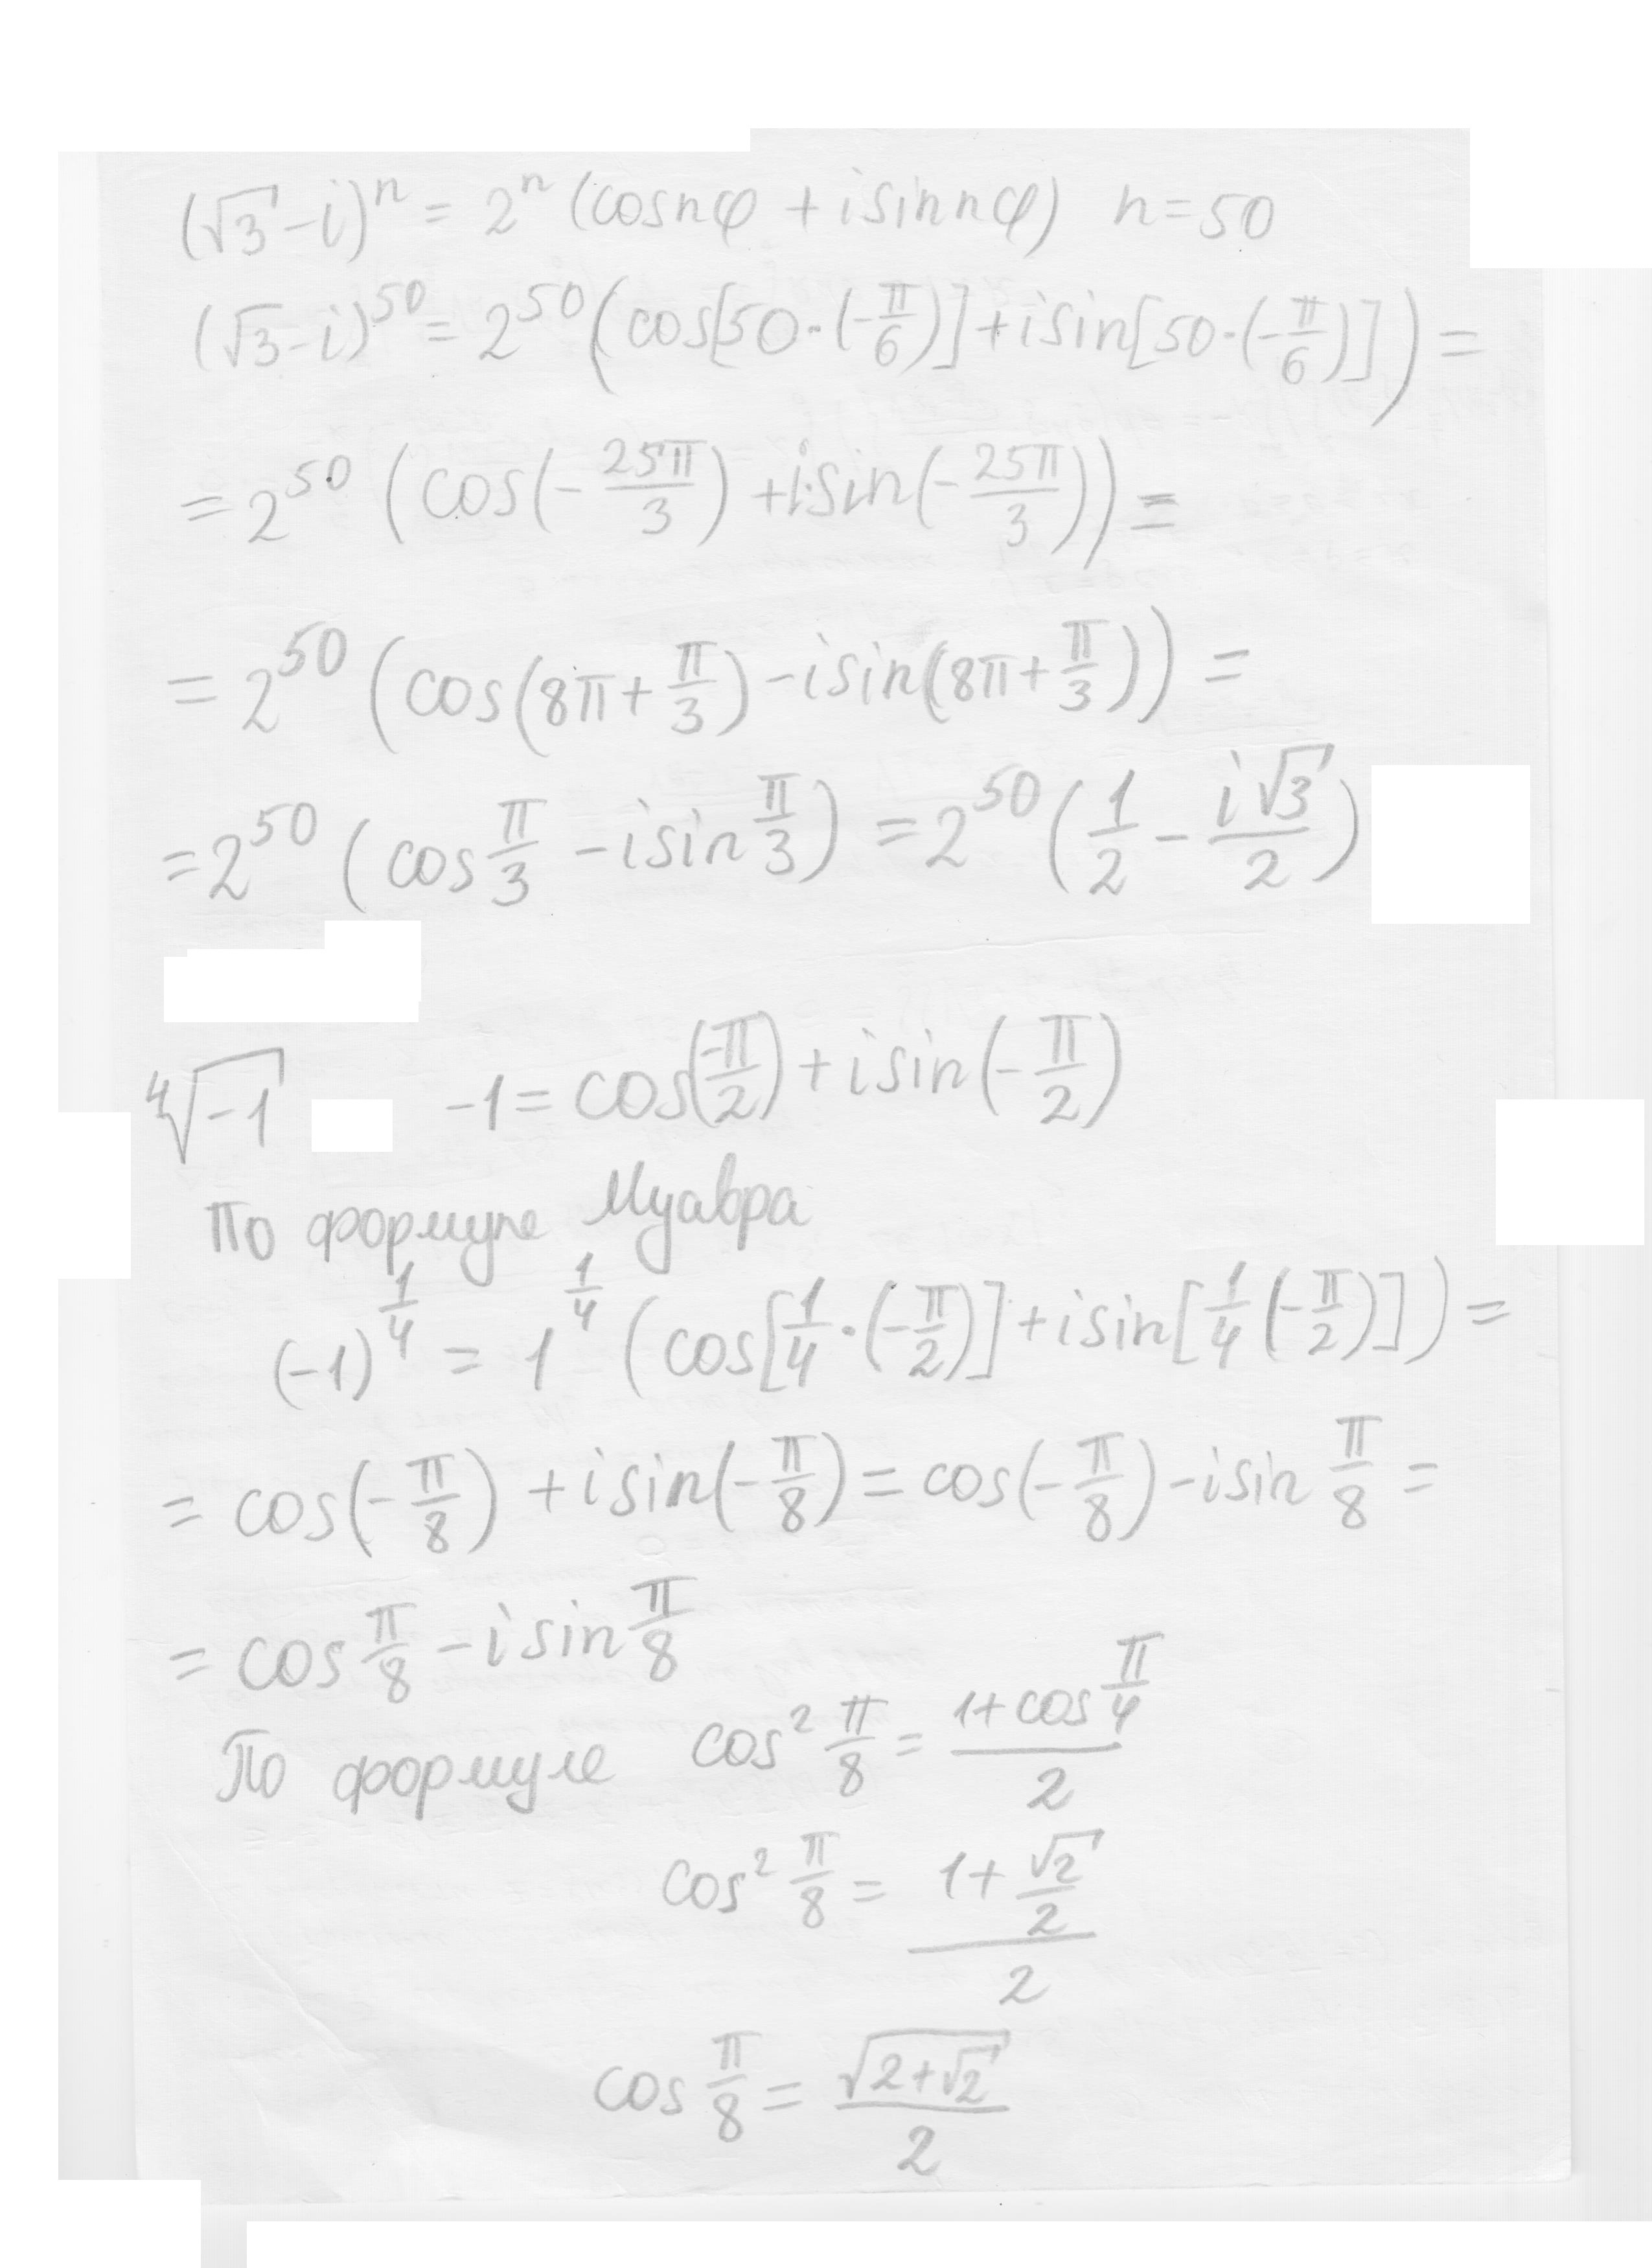 (√3-i)ⁿ = 2ⁿ (cos nφ + i sin nφ) n=50
(√3-i)⁵⁰ = 2⁵⁰ (cos[50·(-π/6)] + i sin[50·(-π/6)]) =
= 2⁵⁰ (cos(-25π/3) + i·sin(-25π/3)) =
= 2⁵⁰ (cos(8π+π/3) - i sin(8π+π/3)) =
= 2⁵⁰ (cos π/3 - i sin π/3) = 2⁵⁰ (1/2 - i√3/2)
⁴√-1 -1 = cos(-π/2) + i sin(-π/2)
По формуле Муавра
(-1)^(1/4) = 1^(1/4) (cos[1/4·(-π/2)] + i sin[1/4(-π/2)]) =
= cos(-π/8) + i sin(-π/8) = cos(-π/8) - i sin π/8 =
= cos π/8 - i sin π/8
По формуле cos² π/8 = (1+cos π/4)/2
cos² π/8 = (1+√2/2)/2
cos π/8 = √(2+√2)/2